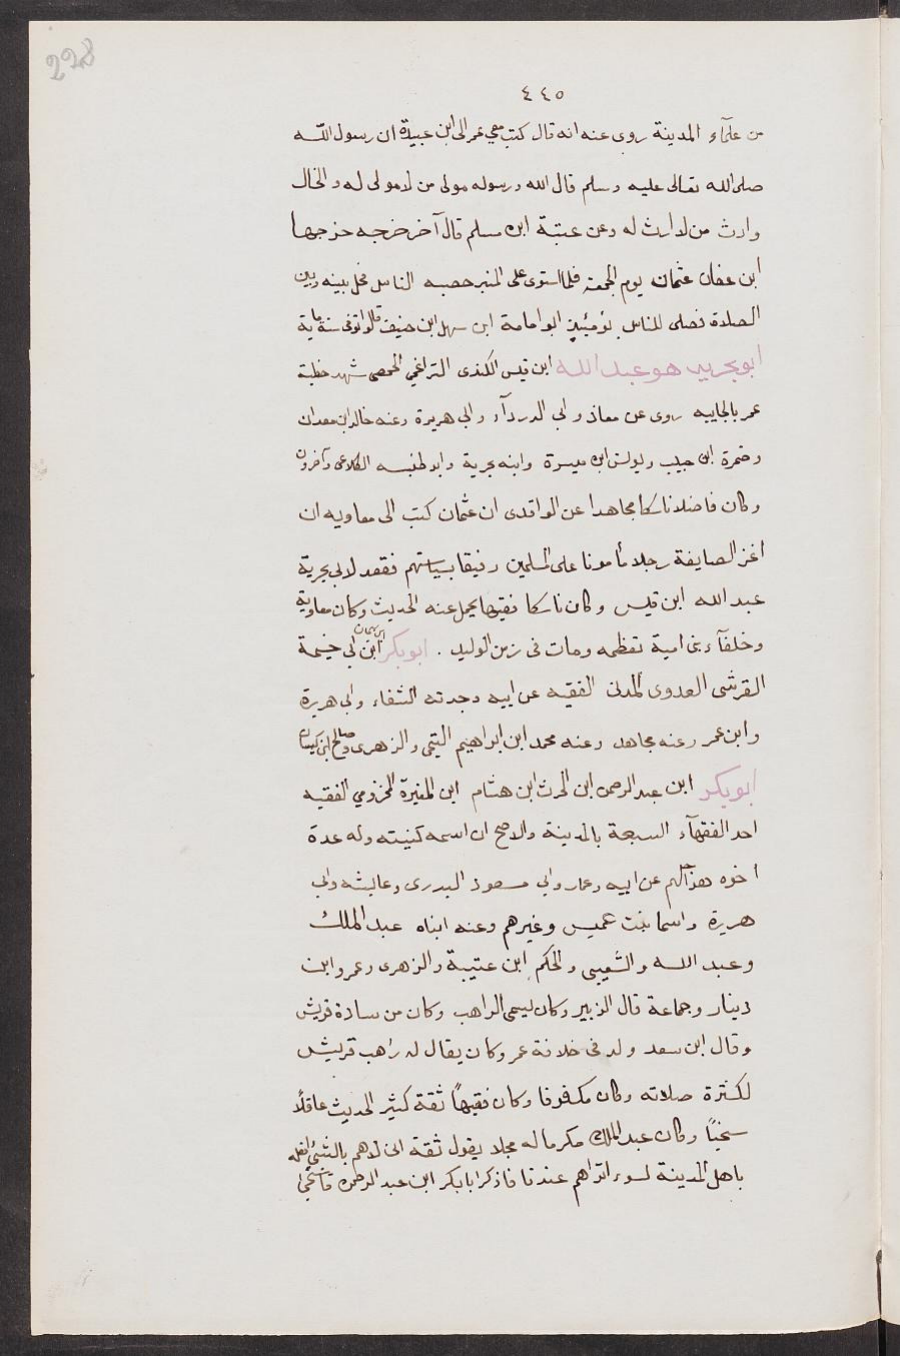 228
٤٤٥
من علمآء المدينة روى عنه انه قال كتب معي عمر الى ابن عبيدة ان رسول الله
صلى الله تعالى عليه وسلم قال الله ورسوله مولى من لا مولى له والخال
وارث من لا ارث له وعن عتبة ابن مسلم قال آخر خرجه خرجها
ابن عفان عثمان يوم الجمعة فلما استوى على المنبر حصبه الناس فحل بينه وبين
الصلاة فصلى للناس يومئذ ابو امامة ابن سهل ابن حنيف قالوا توفى سنة ماية
ابو بحرية هو عبد الله ابن قيس الكندى التراغمي الحمصى شهد خطبة
عمر بالجابيه روى عن معاذ وابي الدردآء وابي هريرة وعنه خالد ابن معدان
وضمرة ابن حبيب ويونس ابن ميسرة وابنه بحرية وابو ظبيه الكلاعى وآخرون
وكان فاضلا ناسكا مجاهدا عن الواقدى ان عثمان كتب الى معاويه ان
اغز الصايفة رجلا مأمونا على المسلمين رفيقا بسياستهم فعقد لابي بحرية
عبد الله ابن قيس وكان ناسكا فقيها يحمل عنه الحديث وكان معاوية
وخلفآء بنى امية تعظمه ومات فى زمن الوليد . ابو بكر ابن سليمان ابن ابي خيثمة
القرشى العدوى المدنى الفقيه عن ابيه وجدته الشفاء وابي هريرة
وابن عمر وعنه مجاهد وعنه محمد ابن ابراهيم التيمى والزهرى وصالح ابن كيسان
ابو بكر ابن عبد الرحمن ابن الحرث ابن هشام ابن المغيرة المخزومي الفقيه
احد الفقهآء السبعة بالمدينة والاصح ان اسمه كنيته وله عدة
اخوه هو اجلهم عن ابيه وعمار وابي مسعود البدرى وعايشه وابي
هريرة واسما بنت عميس وغيرهم وعنه ابناه عبد الملك
وعبد الله والشعبى والحكم ابن عتيبة والزهرى وعمرو ابن
دينار وجماعة قال الزبير وكان يسمى الراهب وكان من سادة قريش
وقال ابن سعد ولد فى خلافة عمر وكان يقال له راهب قريش
لكثرة صلاته وكان مكفوفا وكان فقيهًا ثقة كثير الحديث عاقلًا
سخيًا وكان عبد الملك مكرما له مجلا يقول ثقة انى لاهم بالشئ افعله
باهل المدينة لسوء اثراهم عندنا فاذكر ابا بكر ابن عبد الرحمن فاستحى